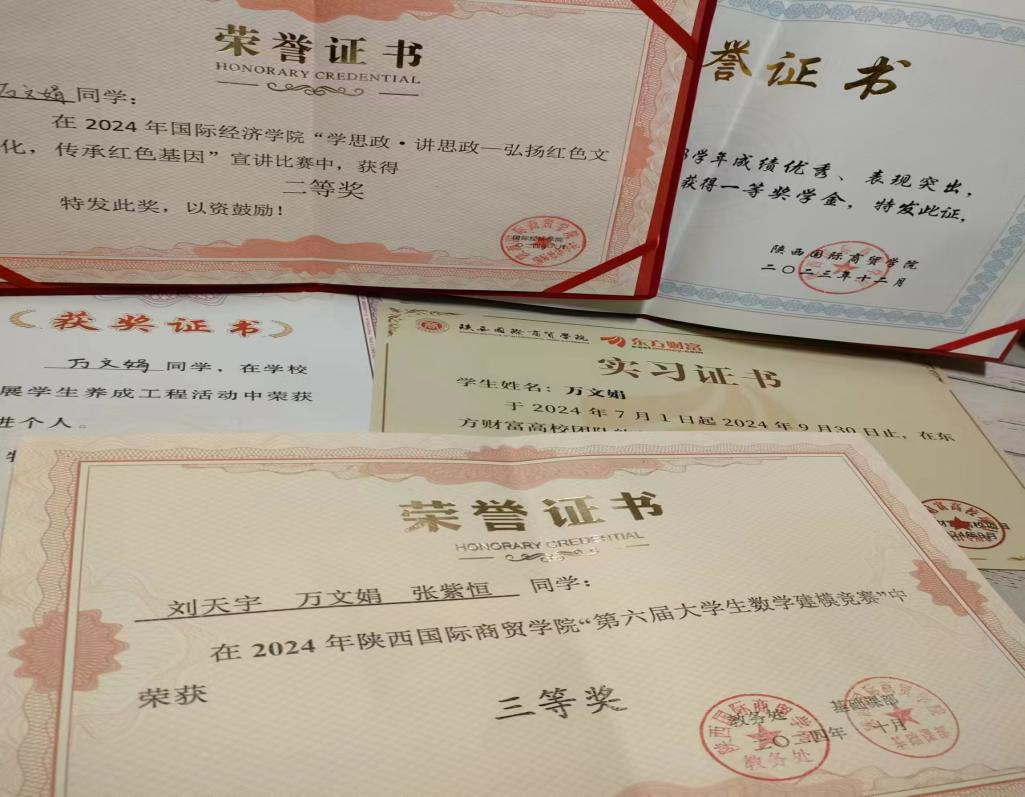 荣誉证书
HONORARY CREDENTIAL
万文娟同学：
在 2024 年国际经济学院“学思政·讲思政—弘扬红色文
化，传承红色基因”宣讲比赛中，获得
二等奖
特发此奖，以资鼓励！
国际经济学院
誉证书
学年成绩优秀、表现突出，
获得一等奖学金，特发此证，
陕西国际商贸学院
二〇二三年十二月
获奖证书
万文娟同学，在学校
展学生养成工程活动中荣获
进个人。
陕西国际商贸学院 东方财富
eastmoney.com
实习证书
学生姓名：万文娟
于 2024 年 7 月 1 日起 2024 年 9 月 30 日止，在东
方财富高校团队
荣誉证书
HONORARY CREDENTIAL
刘天宇 万文娟 张紫恒 同学：
在 2024 年陕西国际商贸学院“第六届大学生数学建模竞赛”中
荣获
三等奖
教务处 基础课部
二〇二四年 十月
陕西国际商贸学院
教务处